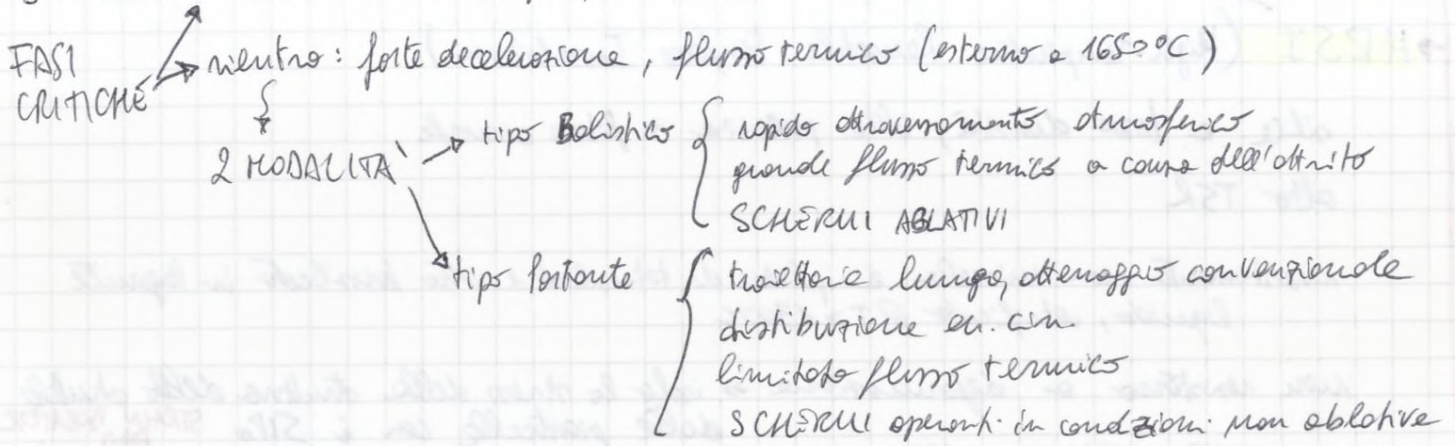 FASI
CRITICHE
rientro: forte decelerazione, flusso termico (esterno a 1650°C)
2 MODALITA'
tipo Balistico
rapido attraversamento atmosferico
grande flusso termico a causa dell'attrito
SCHERMI ABLATIVI
tipo Portante
traiettorie lunga, atterraggio convenzionale
distribuzione en. cin.
limitato flusso termico
SCHERMI operanti in condizioni non ablative